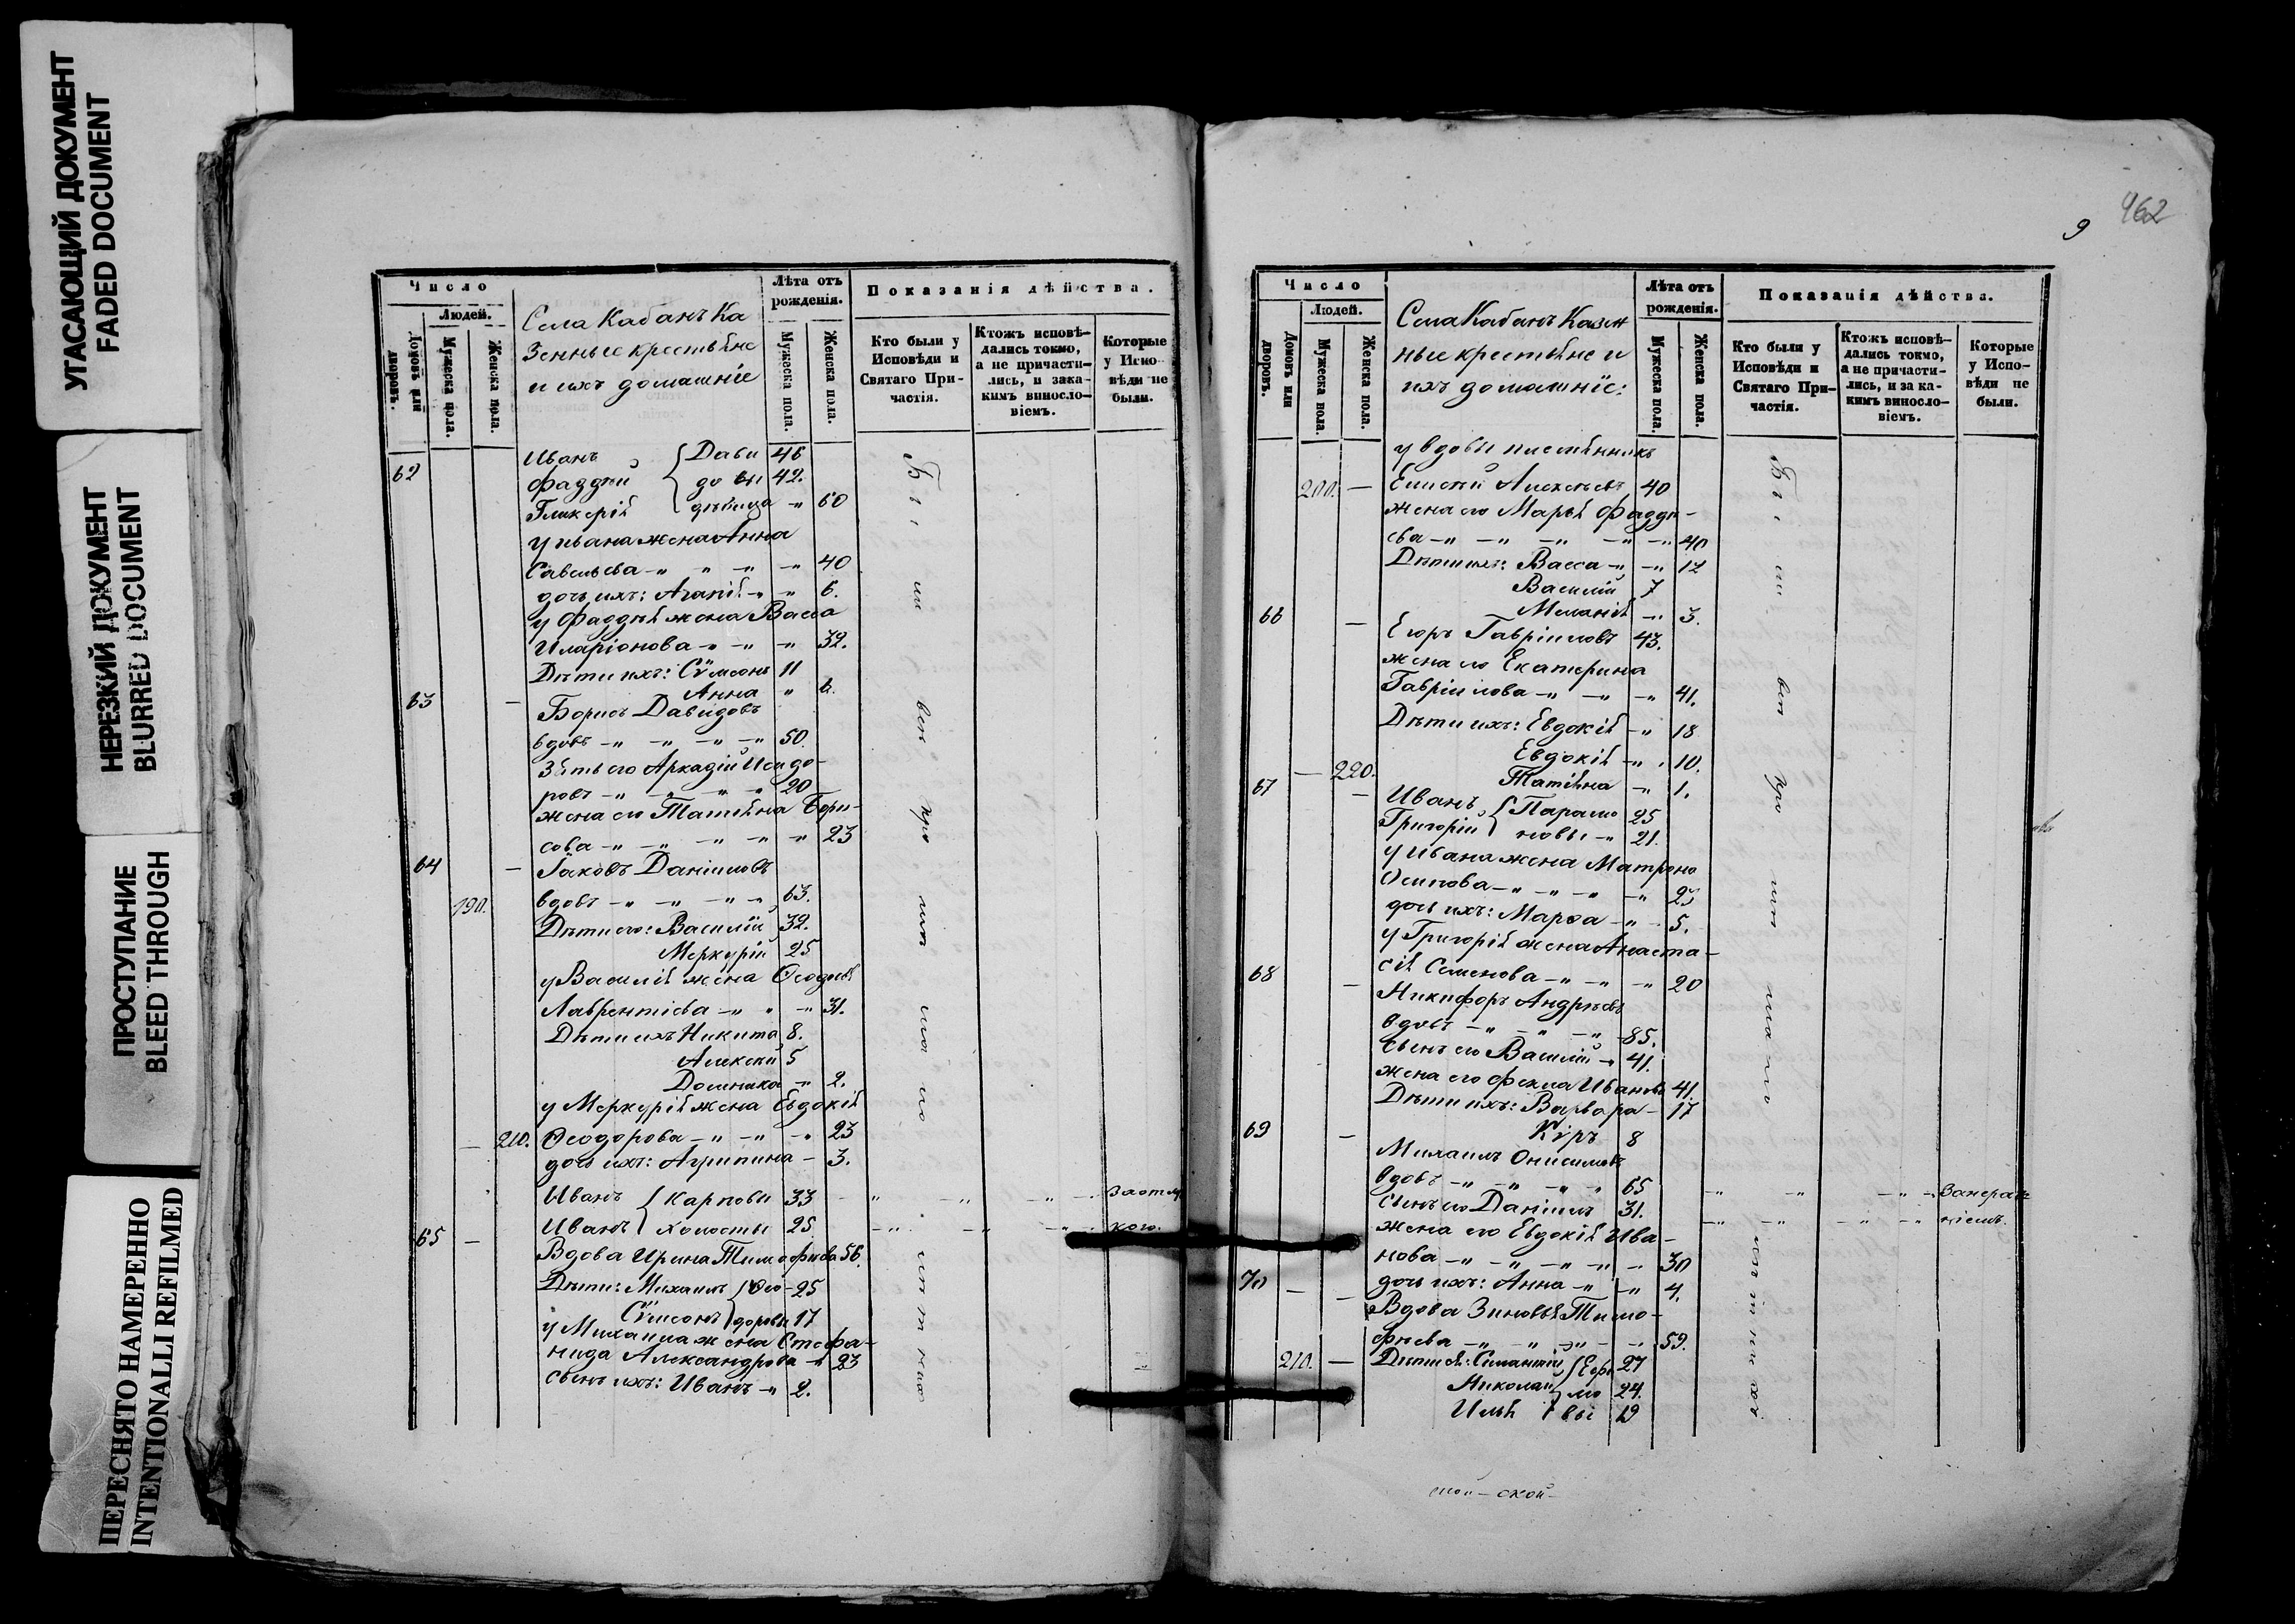 УГАСАЮЩИЙ ДОКУМЕНТ
FADED DOCUMENT
НЕРЕЗКИЙ ДОКУМЕНТ
BLURRED DOCUMENT
ПРОСТУПАНИЕ
BLEED THROUGH
ПЕРЕСНЯТО НАМЕРЕННО
INTENTIONALLI REFILMED
Число
Людей.
Домовъ или дворовъ.
Мужеска пола.
Женска пола.
Села Кабанъ Ка
зенные крестьяне
и ихъ домашніе
Лѣта отъ рожденія.
Мужеска пола.
Женска пола.
Показанія дѣйства.
Кто были у Исповѣди и Святаго При-частія.
Ктожъ исповѣ-дались токмо, а не причасти-лись, и зака-кимъ виносло-віемъ.
Которые у Испо-вѣди не были.
62 Иванъ { Дави 46
Фаддей { до вы 42.
Гликерія { дѣвица -„ 60
у Ивана жена Анна
Савельева -„ „ -„ -„ 40
дочь ихъ: Агапія -„ „ 6.
у Фаддея жена Васса
Иларіонова -„ -„ -„ 32.
Дѣти ихъ: Сѵмеонъ 11
Анна „ 6.
63 — Борисъ Давидовъ
вдовъ -„ -„ -„ -„ 50.
Зять его Аркадій Исидо-
ровъ -„ -„ -„ „ 20
жена его Татіяна Бори-
сова -„ -„ -„ „ -„ 23
64 — Іаковъ Даніиловъ
190. вдовъ -„ -„ -„ -„ 63.
Дѣти его: Василій 32.
Меркурій 25
у Василія жена Ѳеодосія
Лаврентіева -„ „ -„ 31.
Дѣти ихъ Никита 8.
Алексѣй 5
Домника -„ 2.
у Меркурія жена Евдокія
— 210. Ѳеодорова -„ -„ -„ 23
дочь ихъ: Агрипина - 3.
Иванъ { Карповы 33 - „ -„ -„ -
Иванъ { холосты 25 -„ -„ -„ -
65 — Вдова Ирина Тимофѣева 56.
Дѣти: Михаилъ { Ѳео- 25
Сѵмеонъ { доровы 17
у Михаила жена Стефа-
нида Александрова -„ 23
сынъ ихъ: Иванъ -„ 2.
962
9
Число
Людей.
Домовъ или дворовъ.
Мужеска пола.
Женска пола.
Села Кабанъ Казен
ные крестьяне и
ихъ домашніе:
Лѣта отъ рожденія.
Мужеска пола.
Женска пола.
Показанія дѣйства.
Кто были у Исповѣди и Святаго При-частія.
Ктожъ исповѣ-дались токмо, а не причасти-лись, и за ка-кимъ виносло-віемъ.
Которые у Испо-вѣди не были.
у вдовы племянникъ
200. — Елисей Алексѣевъ 40
жена его Марья Фаддѣ-
ева -„ -„ -„ -„ -„ 40
Дѣти ихъ: Васса -„ -„ 12
Василій 7
Меланія -„ 3.
66 — Егоръ Гавріиловъ 43.
жена его Екатерина
Гавріилова -„ -„ -„ 41.
Дѣти ихъ: Евдокія -„ 18
Евдокія -„ . 10.
— 220. Татіяна -„ 1.
67 — Иванъ { Парамо 25
Григорій { новы -„ 21.
у Ивана жена Матрона
Осипова -„ -„ -„ -„ 25
дочь ихъ: Марѳа -„ 5.
у Григорія жена Анаста-
сія Семенова -„ -„ -„ 20
68 — Никифоръ Андрѣевъ
вдовъ -„ -„ -„ 85.
Сынъ его Василій -„ 41.
жена его Фекла Иванова 41.
Дѣти ихъ: Варвара - 17
Киръ 8
69 — Михаилъ Онисимовъ
вдовъ -„ -„ „ -„ 65
Сынъ его Даніилъ 31.
жена его Евдокія Ива-
нова -„ -„ -„ -„ - 30
дочь ихъ: Анна -„ -„ 4.
70 — — Вдова Зиновья Тимо-
фѣева -„ „ -„ - -„ 59.
210. — Дѣти ея: { Ефи 27
Николай { мо 24.
Илья { вы 19